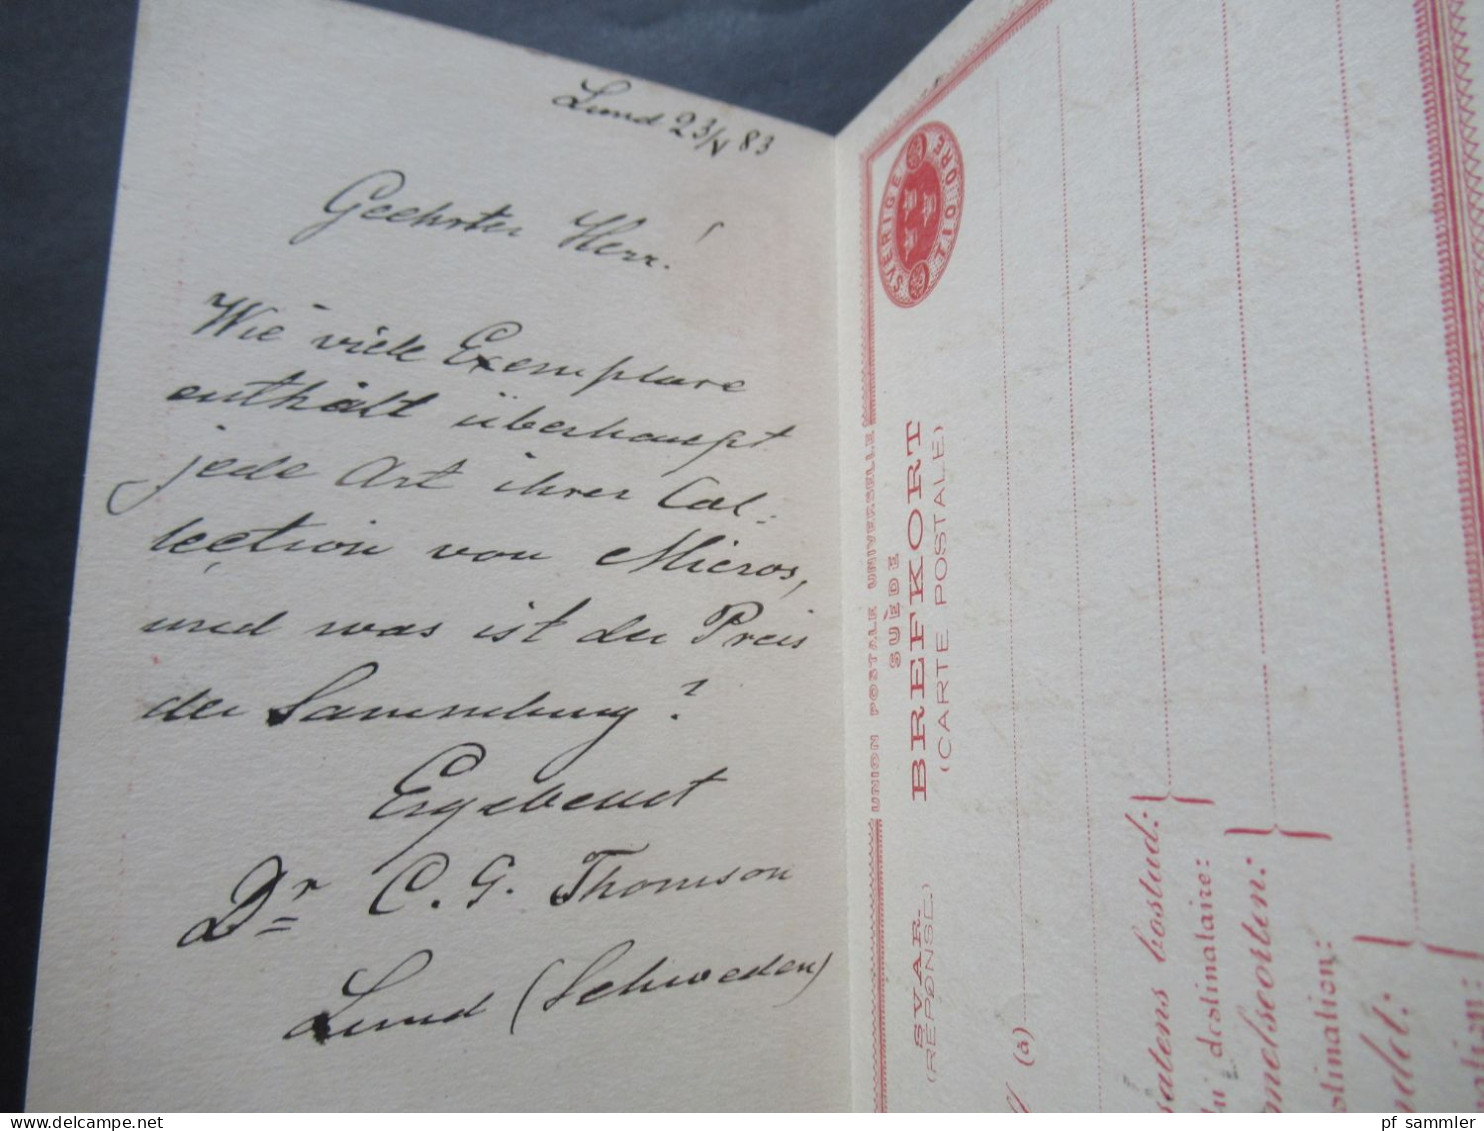 Lund 23/V 83
Geehrter Herr!
Wie viele Exemplare
enthält überhaupt
jede Art ihrer Col-
lection von Micros,
und was ist der Preis
der Sammlung?
Ergebenst
Dr C. G. Thomson
Lund (Schweden)
SVERIGE
TIO ÖRE
UNION POSTALE UNIVERSELLE
SUÈDE
BREFKORT
(CARTE POSTALE)
SVAR.
(RÉPONSE.)
(à)
satens bostad:
du destinataire:
estination:
pf sammler